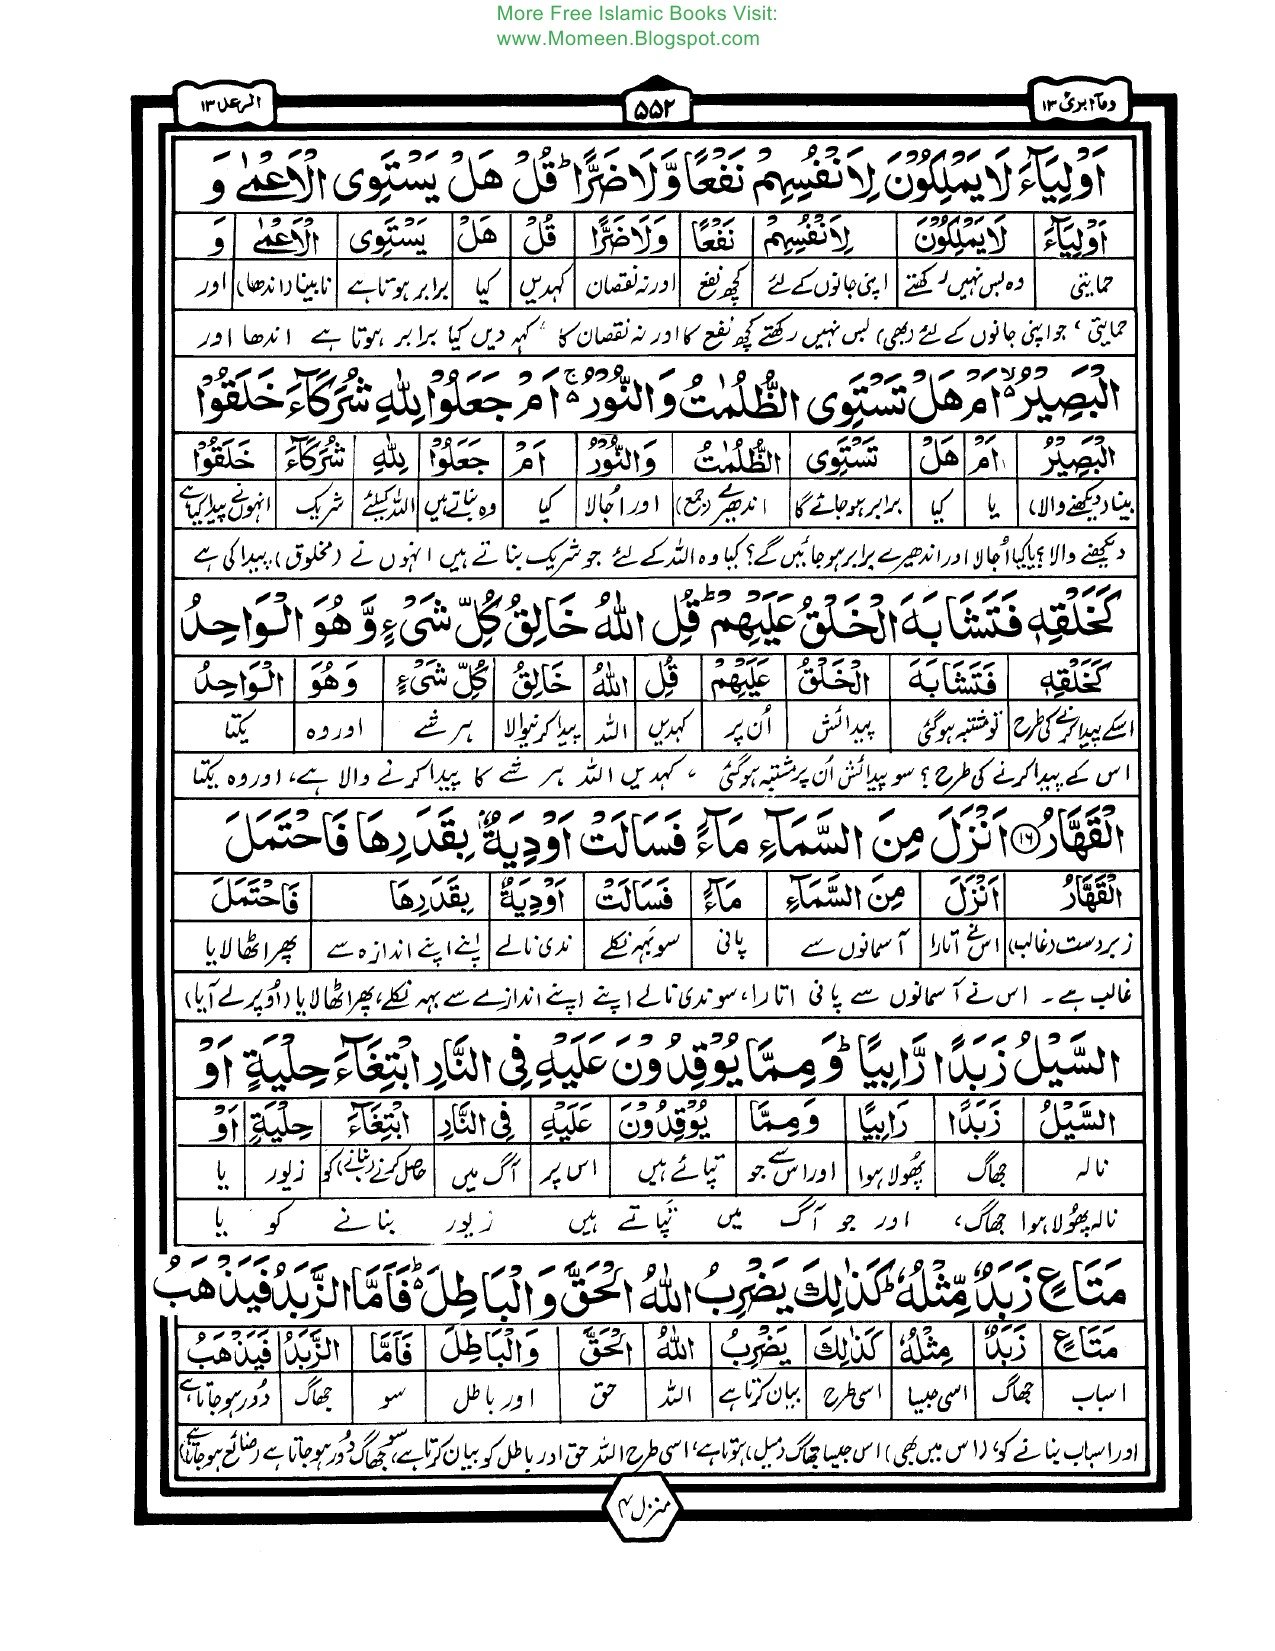 More Free Islamic Books Visit:
www.Momeen.Blogspot.com
وما ابرئ ۱۳
۵۵۲
الرعد ۱۳
اَوْلِيَآءَ لَا يَمْلِكُوْنَ لِاَنْفُسِهِمْ نَفْعًا وَّلَا ضَرًّا ؕ قُلْ هَلْ يَسْتَوِى الْاَعْمٰى وَ
اَوْلِيَآءَ لَا يَمْلِكُوْنَ لِاَنْفُسِهِمْ نَفْعًا وَلَا ضَرًّا قُلْ هَلْ يَسْتَوِى الْاَعْمٰى وَ
حمایتی وہ بس نہیں رکھتے اپنی جانوں کے لئے کچھ نفع اور نہ نقصان کہدیں کیا برابر ہوتا ہے نابینا (اندھا) اور
حمایتی، جو اپنی جانوں کے لئے (بھی) بس نہیں رکھتے کچھ نفع کا اور نہ نقصان کا، کہہ دیں کیا برابر ہوتا ہے اندھا اور
الْبَصِيْرُ ۙ اَمْ هَلْ تَسْتَوِى الظُّلُمٰتُ وَالنُّوْرُ ۚ اَمْ جَعَلُوْا لِلّٰهِ شُرَكَآءَ خَلَقُوْا
الْبَصِيْرُ اَمْ هَلْ تَسْتَوِى الظُّلُمٰتُ وَالنُّوْرُ اَمْ جَعَلُوْا لِلّٰهِ شُرَكَآءَ خَلَقُوْا
بینا (دیکھنے والا) یا کیا برابر ہو جائے گا اندھیرے (جمع) اور اُجالا کیا وہ بناتے ہیں اللہ کیلئے شریک انہوں نے پیدا کیا ہے
دیکھنے والا؟ یا کیا اُجالا اور اندھیرے برابر ہو جائیں گے؟ کیا وہ اللہ کے لئے جو شریک بناتے ہیں انہوں نے (مخلوق) پیدا کی ہے
كَخَلْقِهٖ فَتَشَابَهَ الْخَلْقُ عَلَيْهِمْ ؕ قُلِ اللّٰهُ خَالِقُ كُلِّ شَىْءٍ وَّهُوَ الْوَاحِدُ
كَخَلْقِهٖ فَتَشَابَهَ الْخَلْقُ عَلَيْهِمْ قُلِ اللّٰهُ خَالِقُ كُلِّ شَىْءٍ وَهُوَ الْوَاحِدُ
اسکے پیدا کرنے کی طرح تو مشتبہ ہو گئی پیدائش اُن پر کہدیں اللہ پیدا کرنیوالا ہر شے اور وہ یکتا
اس کے پیدا کرنے کی طرح؟ سو پیدائش اُن پر مشتبہ ہو گئی، کہدیں اللہ ہر شے کا پیدا کرنے والا ہے، اور وہ یکتا
الْقَهَّارُ ۱۶ اَنْزَلَ مِنَ السَّمَآءِ مَآءً فَسَالَتْ اَوْدِيَةٌۢ بِقَدَرِهَا فَاحْتَمَلَ
الْقَهَّارُ اَنْزَلَ مِنَ السَّمَآءِ مَآءً فَسَالَتْ اَوْدِيَةٌ بِقَدَرِهَا فَاحْتَمَلَ
زبردست (غالب) اس نے اتارا آسمانوں سے پانی سو بہہ نکلے ندی نالے اپنے اپنے اندازہ سے پھر اٹھا لایا
غالب ہے۔ اس نے آسمانوں سے پانی اتارا، سو ندی نالے اپنے اپنے اندازے سے بہہ نکلے، پھر اٹھا لایا (اُوپر لے آیا)
السَّيْلُ زَبَدًا رَّابِيًا ؕ وَمِمَّا يُوْقِدُوْنَ عَلَيْهِ فِى النَّارِ ابْتِغَآءَ حِلْيَةٍ اَوْ
السَّيْلُ زَبَدًا رَابِيًا وَمِمَّا يُوْقِدُوْنَ عَلَيْهِ فِى النَّارِ ابْتِغَآءَ حِلْيَةٍ اَوْ
نالہ جھاگ پھولا ہوا اور اس سے جو تپائے ہیں اس پر آگ میں حاصل کرنے (بنانے) کو زیور یا
نالہ پھولا ہوا جھاگ، اور جو آگ میں تپاتے ہیں زیور بنانے کو یا
مَتَاعٍ زَبَدٌ مِّثْلُهٗ ؕ كَذٰلِكَ يَضْرِبُ اللّٰهُ الْحَقَّ وَالْبَاطِلَ ؕ فَاَمَّا الزَّبَدُ فَيَذْهَبُ
مَتَاعٍ زَبَدٌ مِثْلُهٗ كَذٰلِكَ يَضْرِبُ اللّٰهُ الْحَقَّ وَالْبَاطِلَ فَاَمَّا الزَّبَدُ فَيَذْهَبُ
اسباب جھاگ اسی جیسا اسی طرح بیان کرتا ہے اللہ حق اور باطل سو جھاگ دُور ہو جاتا ہے
اور اسباب بنانے کو، (اس میں بھی) اس جیسا جھاگ (میل) ہوتا ہے، اسی طرح اللہ حق اور باطل کو بیان کرتا ہے، سو جھاگ دُور ہو جاتا ہے (ضائع ہو جاتا ہے)
منزل ۳